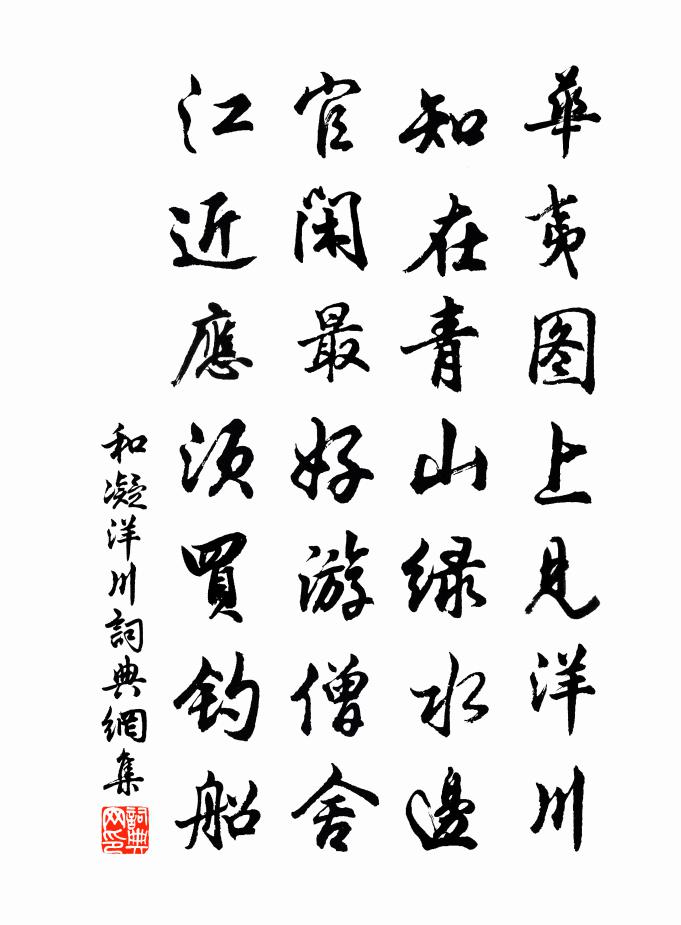 華夷图上見洋川
知在青山緑水邊
官闲最好游僧舍
江近應須買钓船
和凝洋川詞典網集
詞典网印